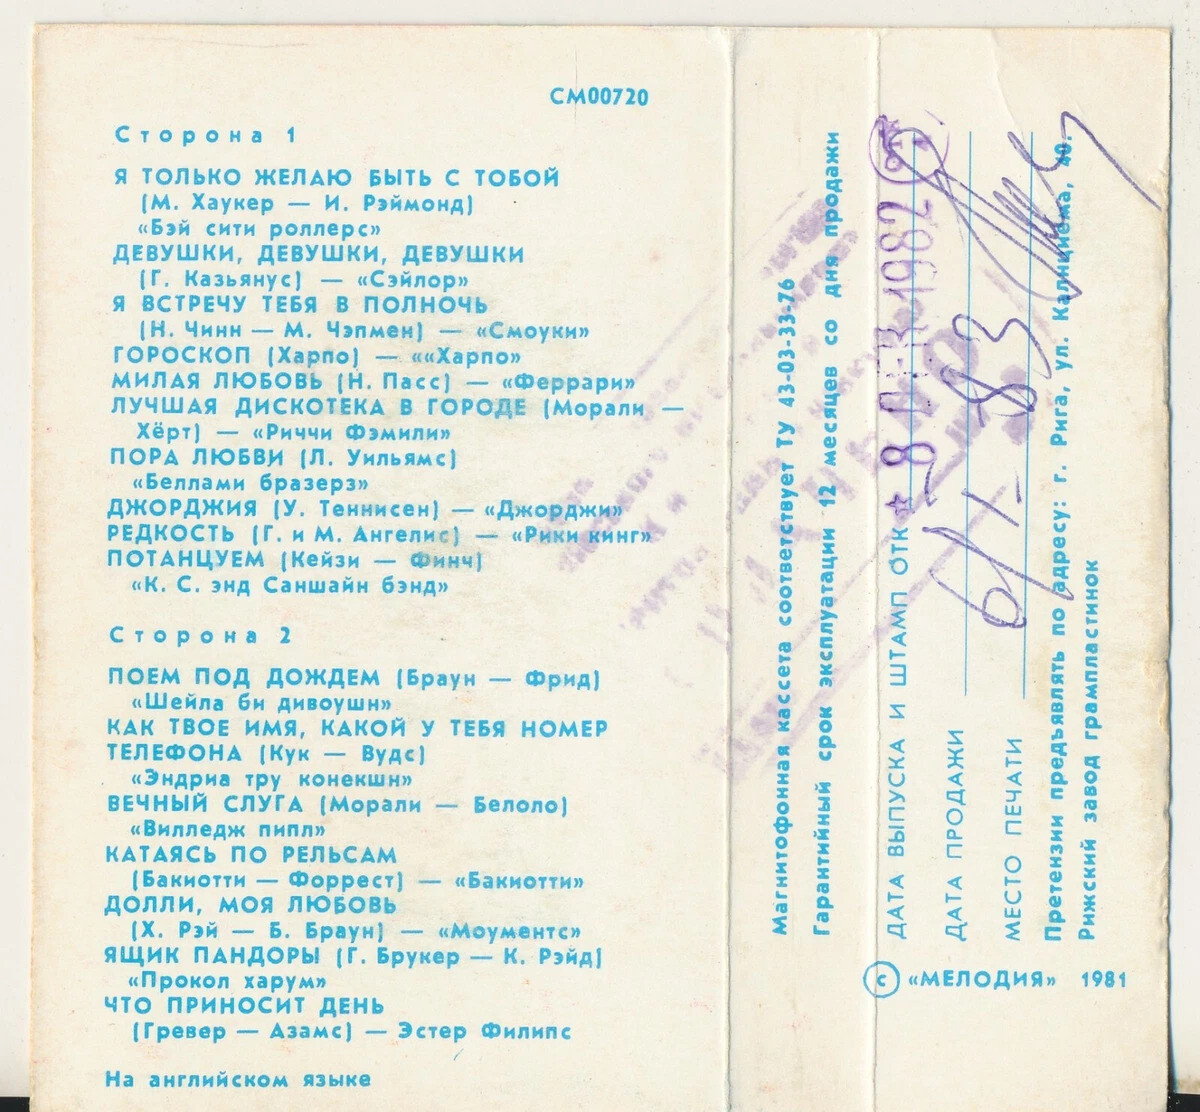 СМ00720
Сторона 1
Я ТОЛЬКО ЖЕЛАЮ БЫТЬ С ТОБОЙ
(М. Хаукер — И. Рэймонд)
«Бэй сити роллерс»
ДЕВУШКИ, ДЕВУШКИ, ДЕВУШКИ
(Г. Казьянус) — «Сэйлор»
Я ВСТРЕЧУ ТЕБЯ В ПОЛНОЧЬ
(Н. Чинн — М. Чэпмен) — «Смоуки»
ГОРОСКОП (Харпо) — ««Харпо»
МИЛАЯ ЛЮБОВЬ (Н. Пасс) — «Феррари»
ЛУЧШАЯ ДИСКОТЕКА В ГОРОДЕ (Морали —
Хёрт) — «Риччи Фэмили»
ПОРА ЛЮБВИ (Л. Уильямс)
«Беллами бразерз»
ДЖОРДЖИЯ (У. Теннисен) — «Джорджи»
РЕДКОСТЬ (Г. и М. Ангелис) — «Рики кинг»
ПОТАНЦУЕМ (Кейзи — Финч)
«К. С. энд Саншайн бэнд»
Сторона 2
ПОЕМ ПОД ДОЖДЕМ (Браун — Фрид)
«Шейла би дивоушн»
КАК ТВОЕ ИМЯ, КАКОЙ У ТЕБЯ НОМЕР
ТЕЛЕФОНА (Кук — Вудс)
«Эндриа тру конекшн»
ВЕЧНЫЙ СЛУГА (Морали — Белоло)
«Вилледж пипл»
КАТАЯСЬ ПО РЕЛЬСАМ
(Бакиотти — Форрест) — «Бакиотти»
ДОЛЛИ, МОЯ ЛЮБОВЬ
(Х. Рэй — Б. Браун) — «Моументс»
ЯЩИК ПАНДОРЫ (Г. Брукер — К. Рэйд)
«Прокол харум»
ЧТО ПРИНОСИТ ДЕНЬ
(Гревер — Азамс) — Эстер Филипс
На английском языке
Магнитофонная кассета соответствует ТУ 43-03-33-76
Гарантийный срок эксплуатации 12 месяцев со дня продажи
ДАТА ВЫПУСКА И ШТАМП ОТК 1982
ДАТА ПРОДАЖИ
МЕСТО ПЕЧАТИ
Претензии предъявлять по адресу: г. Рига, ул. Калнциема, 40.
Рижский завод грампластинок
© «МЕЛОДИЯ» 1981